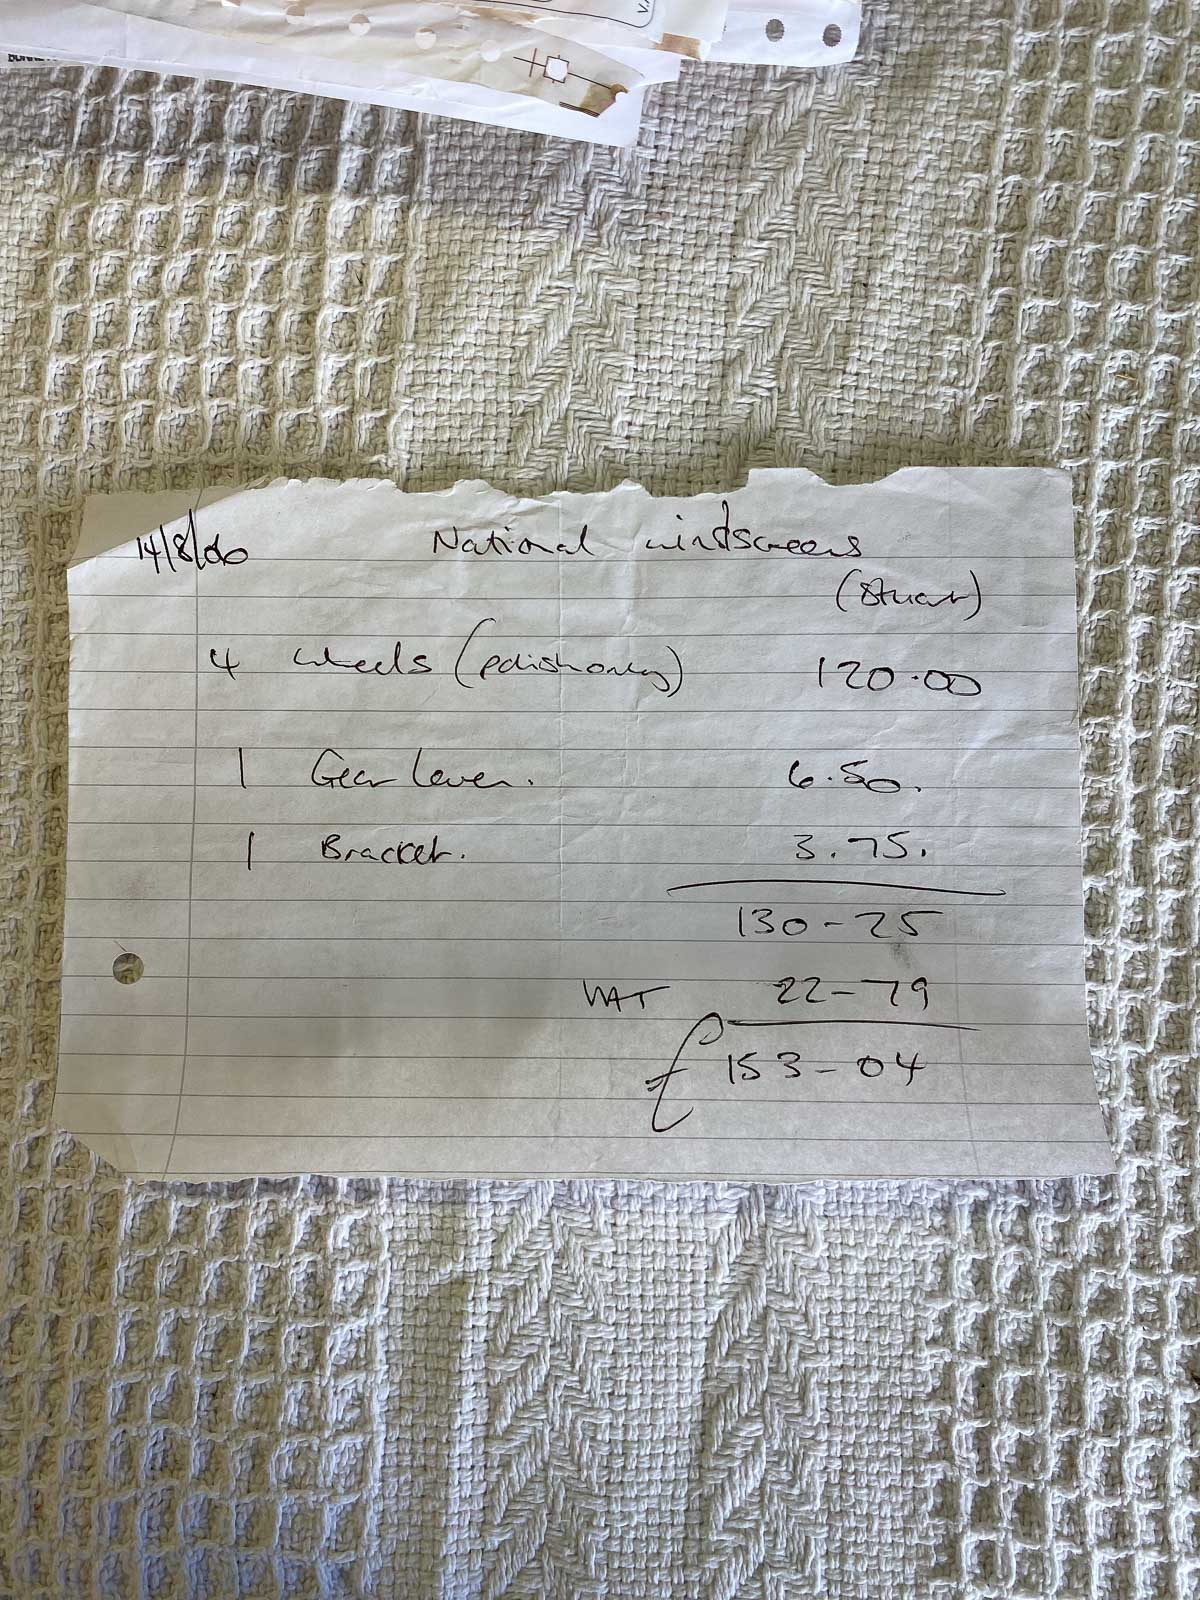 14/8/06 National windscreens
(Stuart)
4 wheels (polish only) 120.00
1 Gear Lever. 6.50.
1 Bracket. 3.75.
130-25
VAT 22-79
£153-04